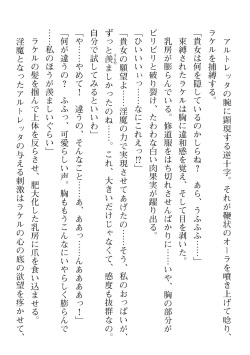 アルトレッタの腕に顕現する逆十字。それが鞭状のオーラを噴き上げて唸り、
ラケルを捕縛する。
「貴女は何を隠しているのかしらね？　あら、うふふふ……」
束縛されたラケルは胸に違和感を覚え、そして目を剥いた。
乳房が膨らんでいる。修道服をはち切れさせんばかりに……いや、胸の部分が
ビリビリと破り裂け、たわわな白い肉果実が躍り出る。
「ひいいいいっ……なにこれえっ!?」
「貴女の願望よ……淫魔の力で実現させてあげたの……そう、私のおっぱいが、
ずっと羨ましかったのね……これ、大きいだけじゃなくて、感度も抜群なの。
自分で試してみるといいわ」
「や……やめて……違うの、そんなこと……あぁっ……んああああっ！」
「何が違うの？　ふふっ、可愛らしい声、胸ももうこんなにいやらしく膨らんで
……私のほうが羨ましいぐらい」
ラケルの髪を掴んで上体を反らさせ、肥大化した乳房に爪を食い込ませる。
淫魔となったアルトレッタの与える刺激はラケルの心の底の欲望を疼かせて、